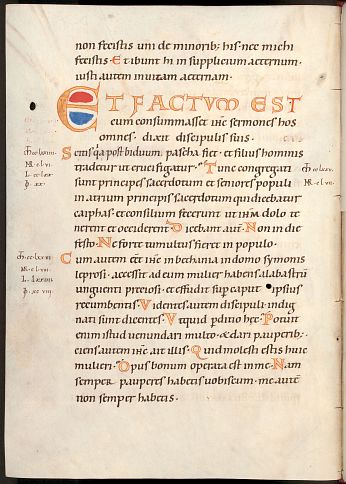 non fecistis uni de minorib; his · nec michi
fecistis · Et ibunt hi in supplicium aeternum ·
iusti autem in uitam aeternam ·
ET FACTVM EST
cum consummasset ihc sermones hos
omnes · dixit discipulis suis ·
Scitis qa post biduum pascha fiet · et filius hominis
tradetur ut crucifigatur · Tunc congregati
sunt principes sacerdotum et seniores populi
in atrium principis sacerdotum qui dicebatur
caiphas · et consilium fecerunt ut ihm dolo te
nerent et occiderent · Dicebant aut · Non in die
festo · Ne forte tumultus fieret in populo ·
Cum autem eet ihc in bethania in domo symonis
leprosi · accessit ad eum mulier habens alabastru
unguenti preciosi · et effudit sup caput ipsius
recumbentis · Videntes autem discipuli indig
nati sunt dicentes · Vt quid pditio hec · Potuit
enim istud uenundari multo · & dari pauperib;
sciens autem ihc ait illis · Quid molesti estis huic
mulieri · Opus bonum operata est in me · Nam
semper pauperes habetis uobiscum · me aute
non semper habetis ·